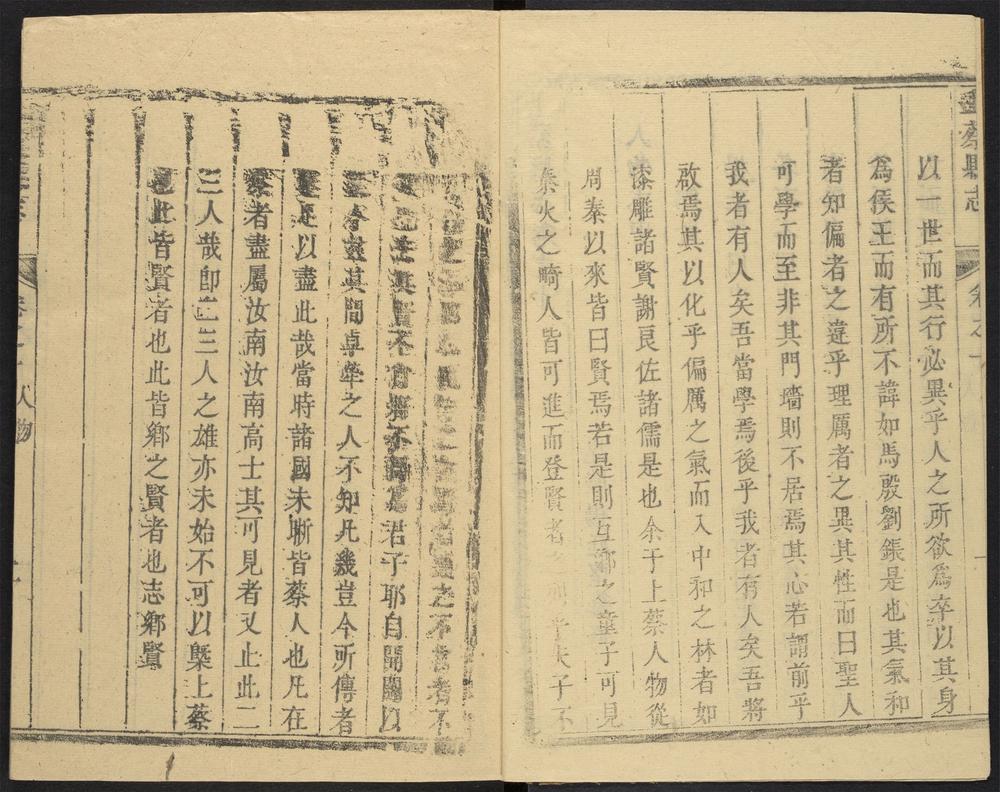 蔡縣志
卷之十
以一世而其行必異乎人之所欲為卒以其身
為侯王而有所不諱如馬殷劉鋹是也其氣和
者知偏者之違乎理厲者之異其性而曰聖人
可學而至非其門墻則不居焉其心若謂前乎
我者有人矣吾當學焉後乎我者有人矣吾將
啟焉其以化乎偏厲之氣而入中和之林者如
漆雕諸賢謝良佐諸儒是也余于上蔡人物從
周秦以來皆曰賢焉若是則互鄉之童子可見
秦火之畸人皆可進而登賢者 乎夫子不
之不 者不
不 君子耶自開闢以
今 其間卓犖之人不知凡幾豈今所傳者
足以盡此哉當時諸國未斬皆蔡人也凡在
蔡者盡屬汝南汝南高士其可見者又止此二
三人哉卽二三人之雄亦未始不可以槩上蔡
也此皆賢者也此皆鄉之賢者也志鄉賢
人物